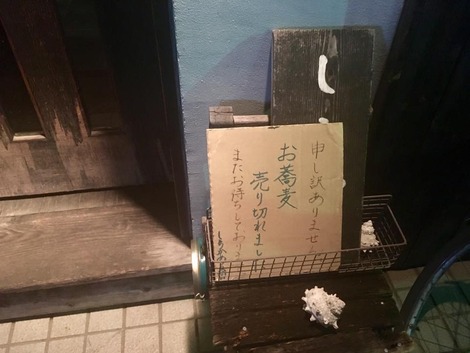 申し訳ありません
お蕎麦
売り切れまし
またお待ちしており
し